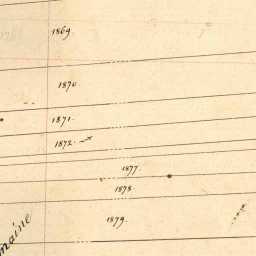 1869.
1870
1871.
1872.
1877.
1878
1879.